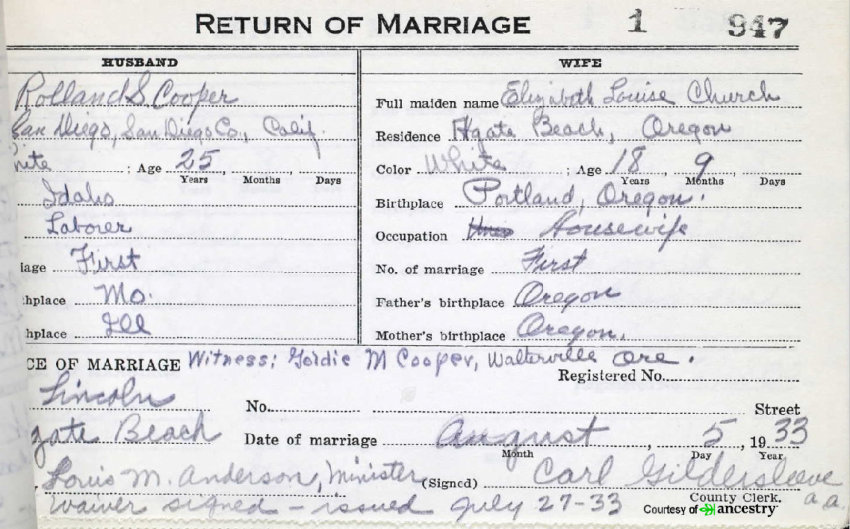 RETURN OF MARRIAGE 1 947
HUSBAND
Rolland S. Cooper
San Diego, San Diego Co., Calif.
hite ; Age 25
Years Months Days
Idaho
Laborer
iage First
hplace Mo.
hplace Ill
WIFE
Full maiden name Elizabeth Louise Church
Residence Agate Beach, Oregon
Color White ; Age 18 9
Years Months Days
Birthplace Portland, Oregon.
Occupation Housewife
No. of marriage First
Father's birthplace Oregon
Mother's birthplace Oregon.
CE OF MARRIAGE Witness: Goldie M Cooper, Walterville Ore.
Registered No.
Lincoln No. Street
gate Beach Date of marriage August, 5, 1933
Month Day Year
Louis M. Anderson, Minister (Signed) Carl Gildersleeve
County Clerk.
Waiver signed - issued July 27-33 a.a.
Courtesy of ancestry